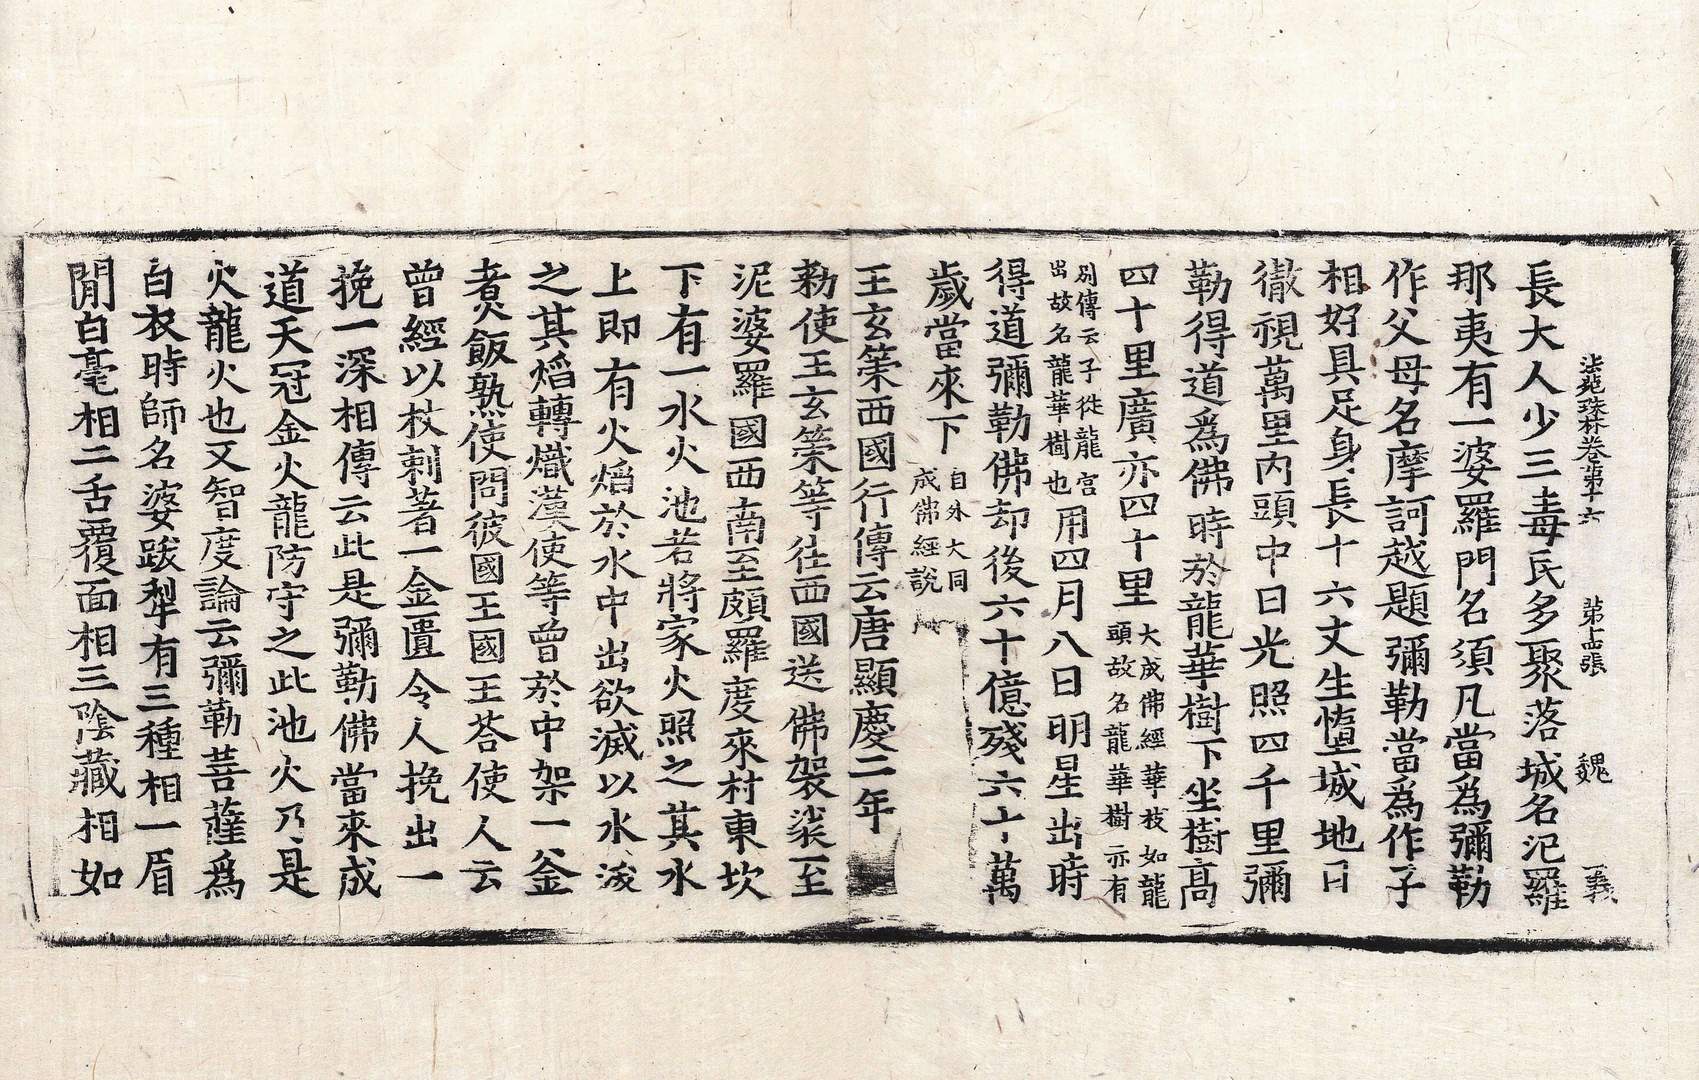 法苑珠林卷第十六 第十四張 魏 義
長大人少三毒民多聚落城名汜羅
那夷有一婆羅門名須凡當為彌勒
作父母名摩訶越題彌勒當為作子
相好具足身長十六丈生墮城地日
徹視萬里內頭中日光照四千里彌
勒得道為佛時於龍華樹下坐樹高
四十里廣亦四十里大成佛經華枝如龍頭故名龍華樹亦有
別傳云子從龍宮出故名龍華樹也用四月八日明星出時
得道彌勒佛却後六十億殘六十萬
歲當來下自外大同成佛經說
王玄策西國行傳云唐顯慶二年
勑使王玄策等往西國送佛袈裟至
泥婆羅國西南至頗羅度來村東坎
下有一水火池若將家火照之其水
上即有火熖於水中出欲滅以水澆
之其熖轉熾漢使等曾於中架一釜
煮飯熟使問彼國王國王荅使人云
曾經以杖刺著一金匱令人挽出一
挽一深相傳云此是彌勒佛當來成
道天冠金火龍防守之此池火乃是
火龍火也又智度論云彌勒菩薩為
白衣時師名婆跋犁有三種相一眉
閒白毫相二舌覆面相三陰藏相如